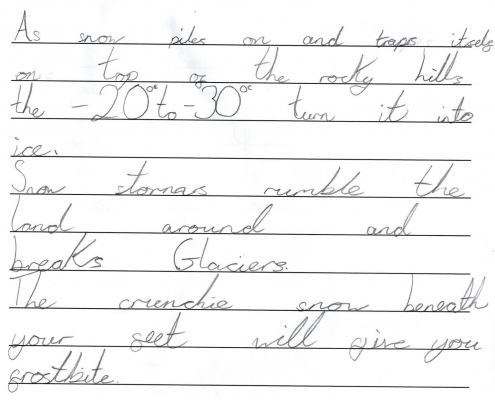 As snow piles on and traps itself
on top of the rocky hills
the -20°c to -30°c turn it into
ice.
Snow stormas rumble the
land around and
breaks Glaciers.
The crunchie snow beneath
your feet will give you
frostbite.